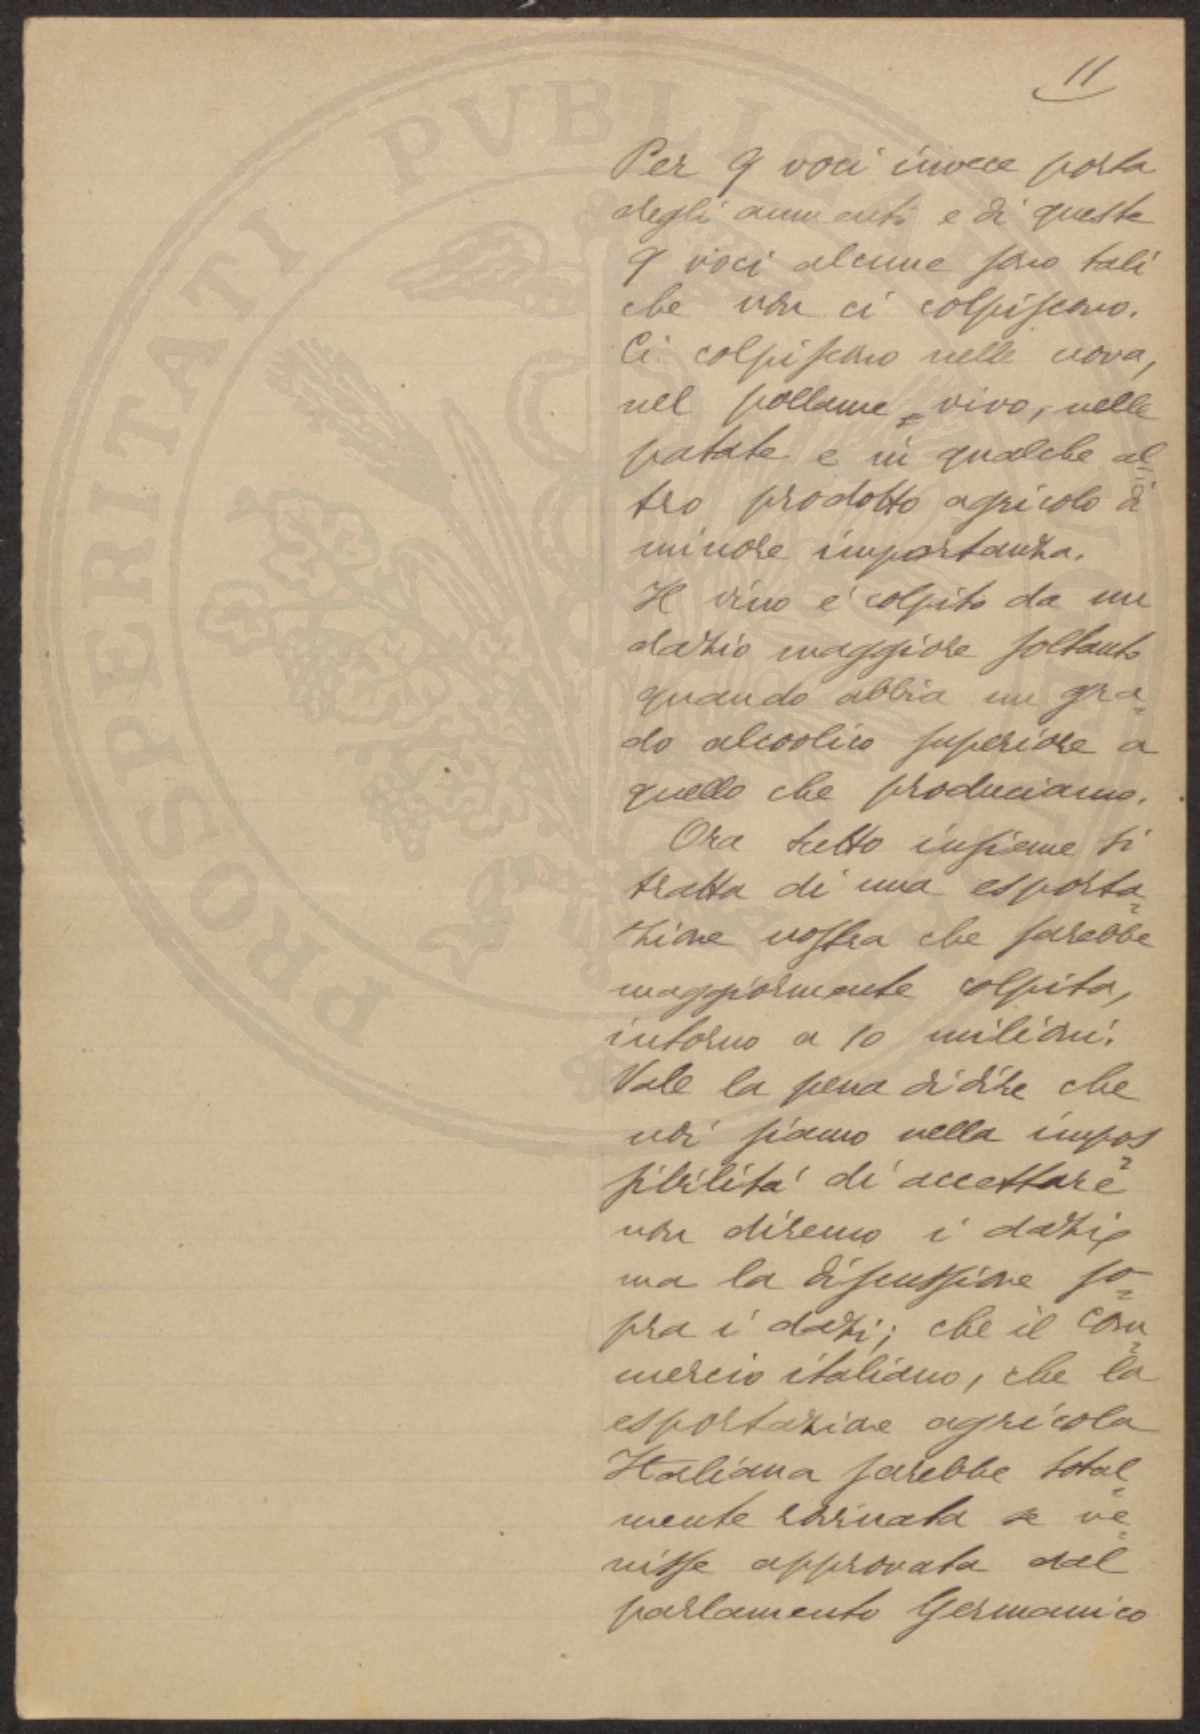 11
Per 9 voci invece porta
degli aumenti e di queste
9 voci alcune sono tali
che non ci colpiscono.
Ci colpiscono nelle uova,
nel pollame vivo, nelle
patate e in qualche al
tro prodotto agricolo di
minore importanza.
Il vino e' colpito da un
dazio maggiore soltanto
quando abbia un gra=
do alcoolico superiore a
quello che produciamo.
Ora tutto insieme si
tratta di una esporta=
zione nostra che sarebbe
maggiormente colpita,
intorno a 10 milioni.
Vale la pena di dire che
noi siamo nella impos=
sibilita' di accettare
non diremo i dazi
ma la discussione so=
pra i dazi; che il com=
mercio italiano, che la
esportazione agricola
Italiana sarebbe total=
mente rovinata se ve=
nisse approvata dal
parlamento Germanico
PROSPERITATI PVBLICAE